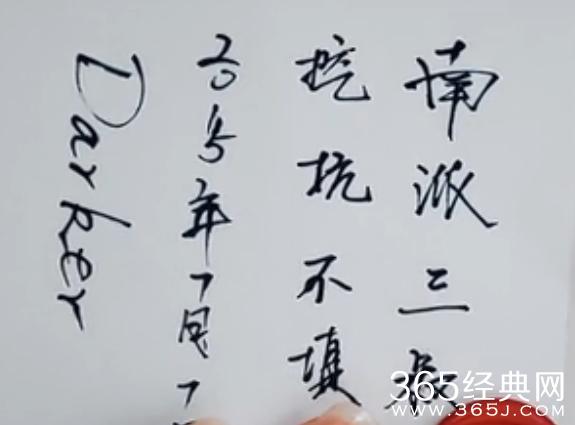 南派三叔
挖坑不填
2015年7月7
Darker
365经典网
WWW.365J.COM